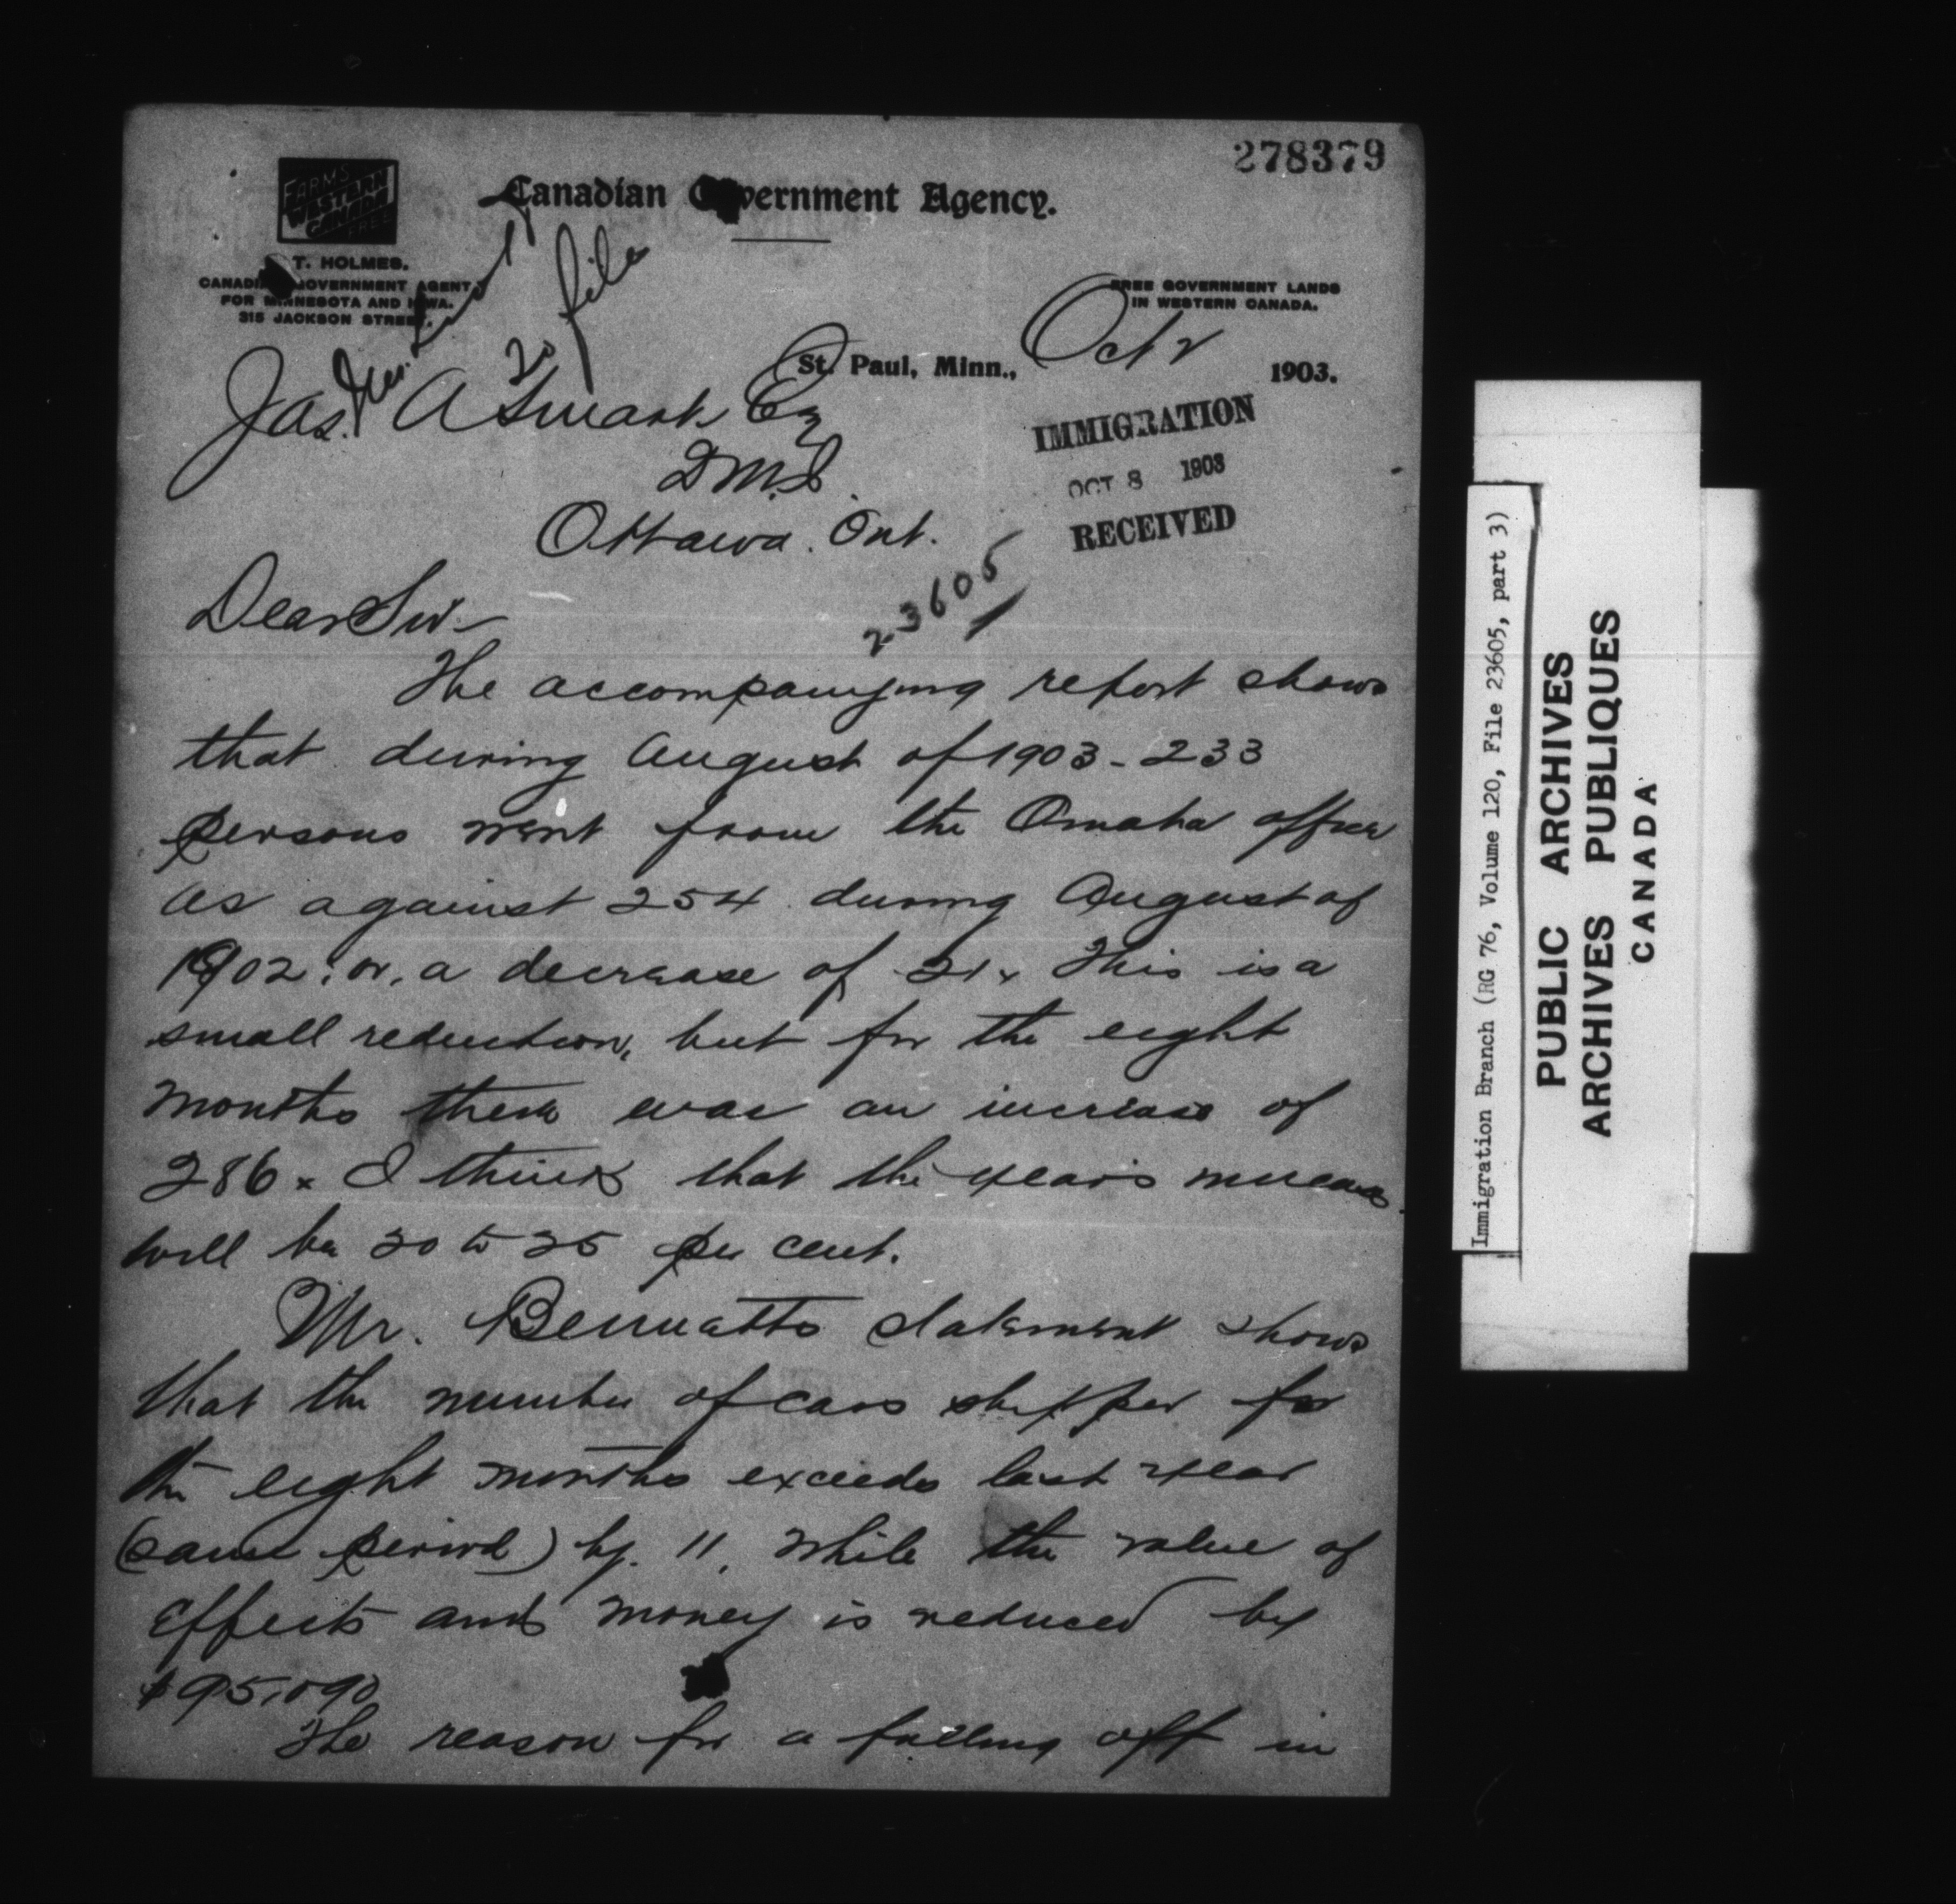 278379
FARMS
WESTERN
CANADA
FREE
Canadian Government Agency.
T. HOLMES.
CANADIAN GOVERNMENT AGENT
FOR MINNESOTA AND IOWA.
315 JACKSON STREET,
FREE GOVERNMENT LANDS
IN WESTERN CANADA.
to file
St. Paul, Minn., Oct 2 1903.
Jas. A Smart Esq
D.M.I.
Ottawa. Ont.
IMMIGRATION
OCT 8 1903
RECEIVED
23605
Dear Sir—
The accompanying report shows
that during August of 1903 - 233
persons went from the Omaha office
as against 254 during August of
1902; or, a decrease of 21. This is a
small reduction, but for the eight
months there was an increase of
286. I think that the year's increase
will be 20 to 25 per cent.
Mr. Bennetts statement shows
that the number of cars shipped for
the eight months exceeds last year
(same period) by 11, while the value of
effects and money is reduced by
$95,090
The reason for a falling off in
Immigration Branch (RG 76, Volume 120, File 23605, part 3)
PUBLIC ARCHIVES
ARCHIVES PUBLIQUES
CANADA